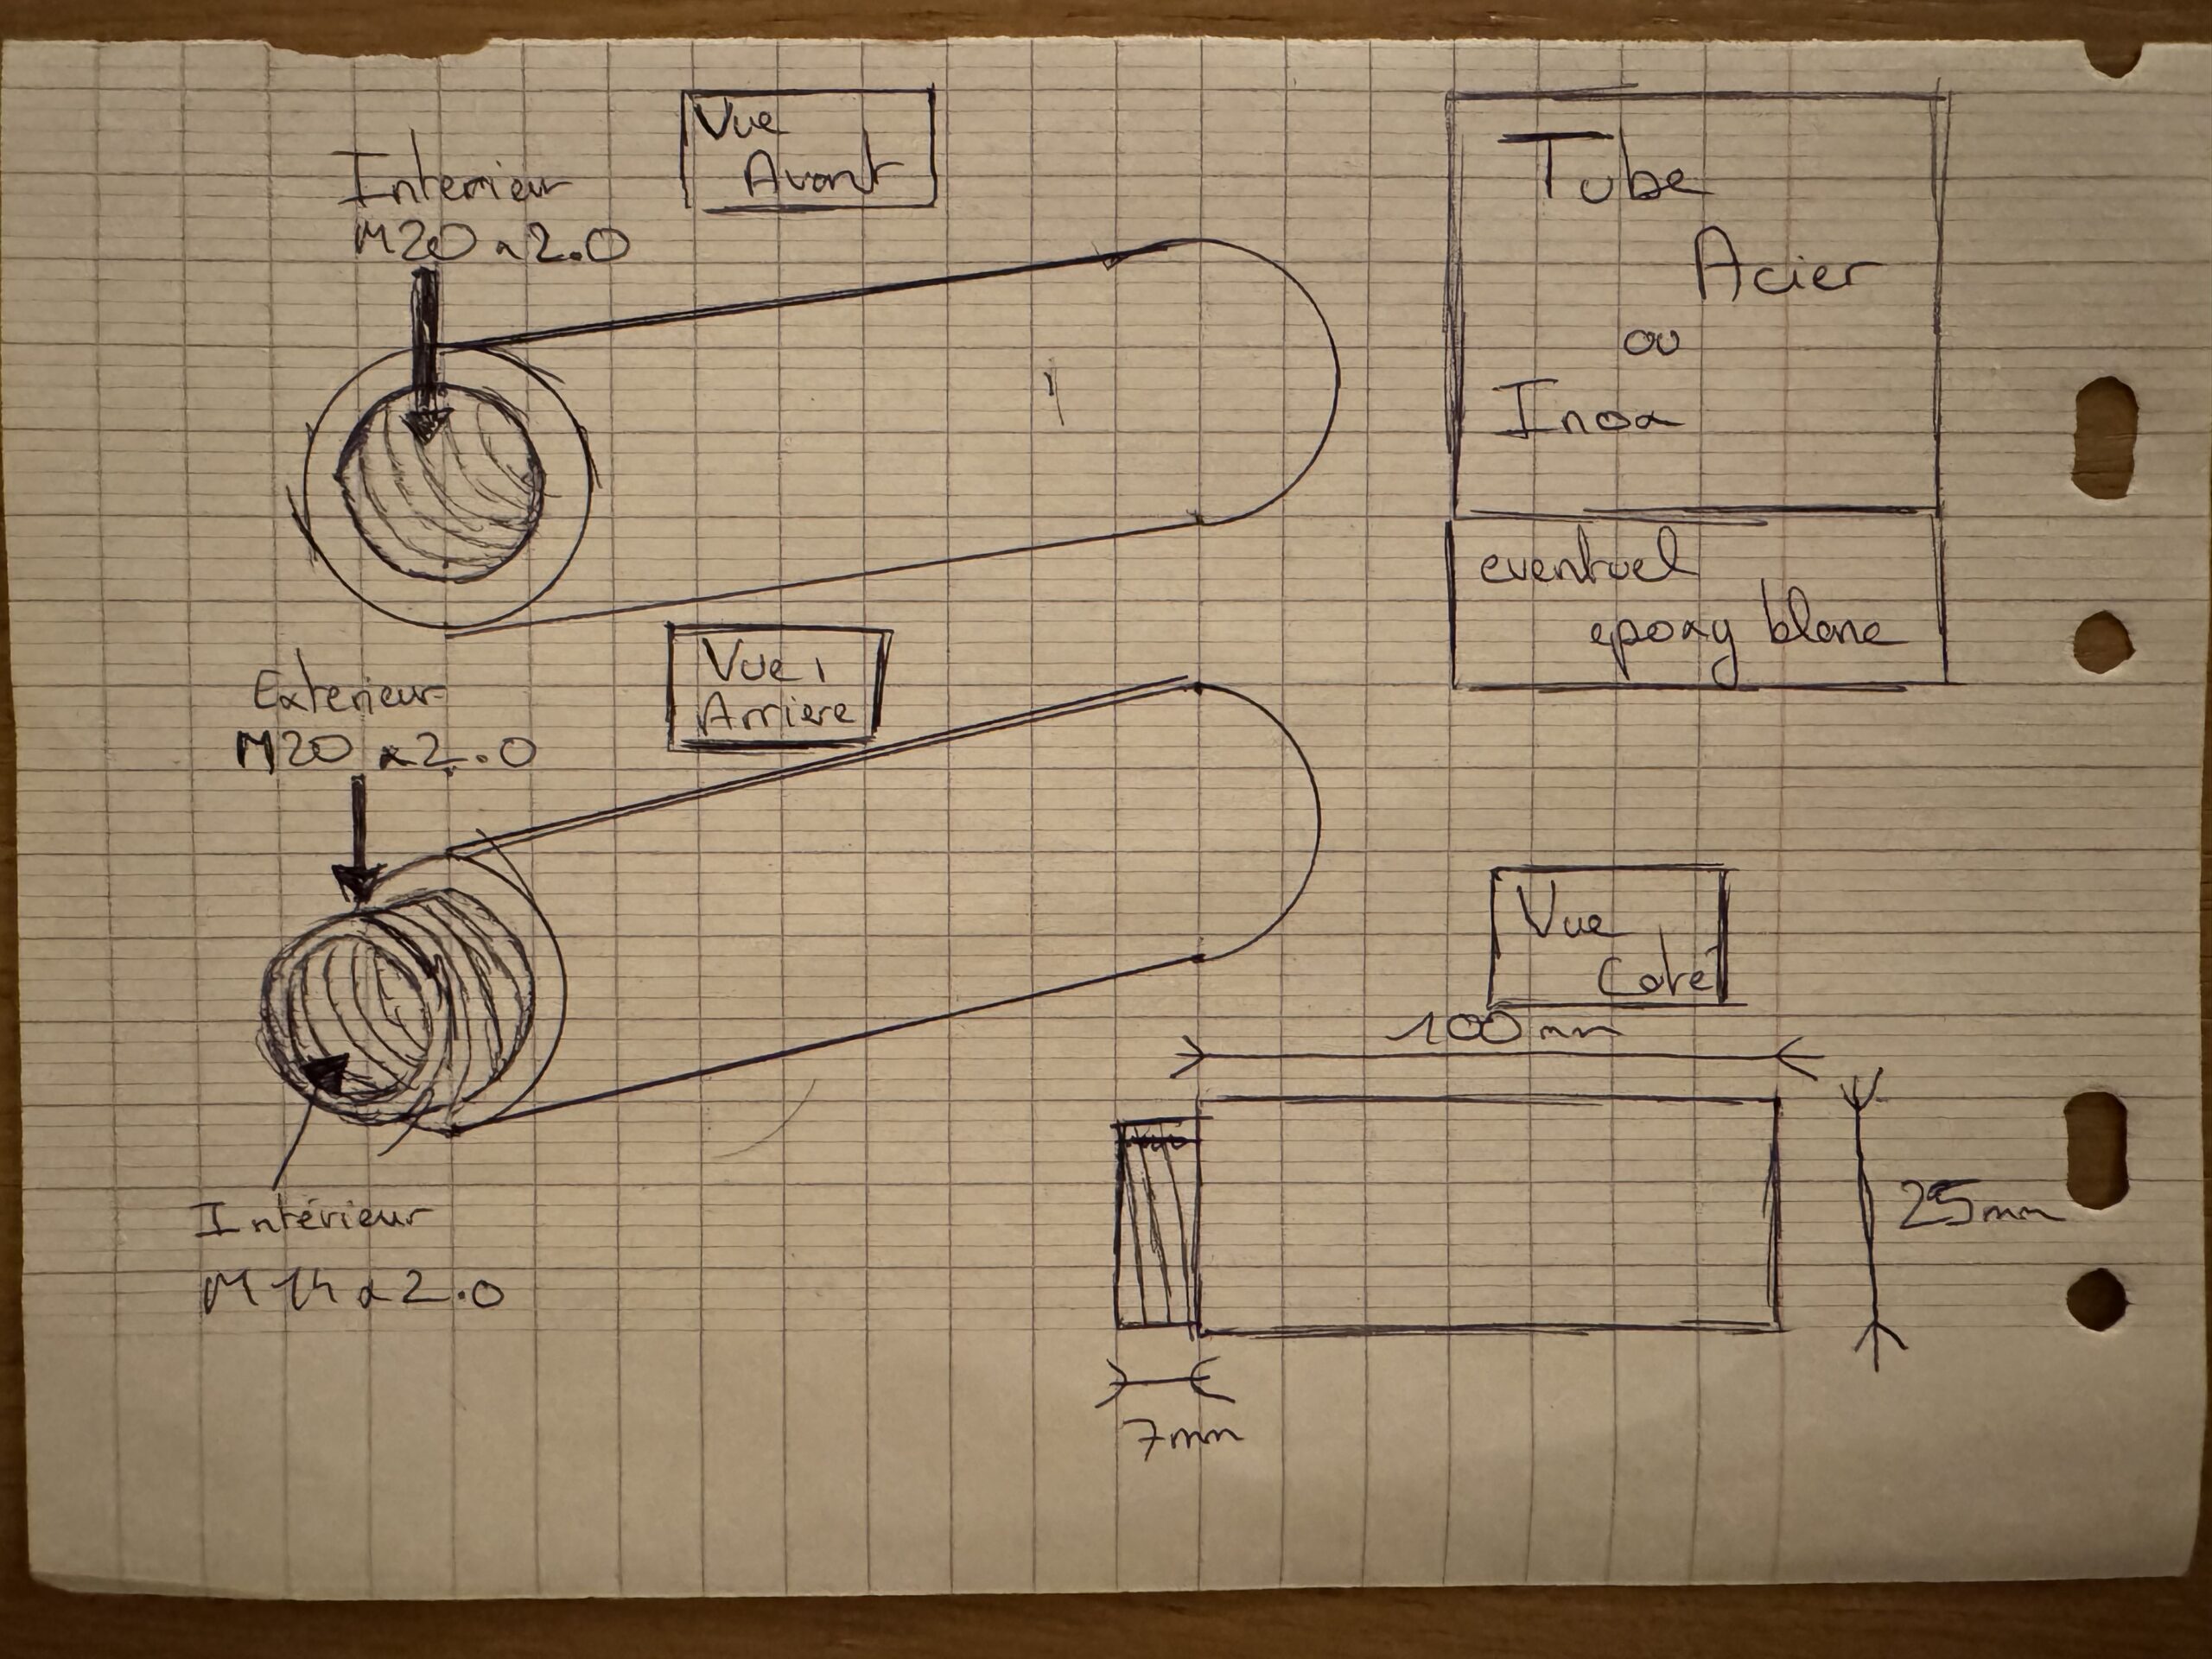 Vue
Avant
Interieur
M20 x 2.0
Tube
Acier
ou
Inox
eventuel
epoxy blanc
Vue
Arriere
Exterieur
M20 x 2.0
Intérieur
M14 x 2.0
Vue
Coté
100 mm
25mm
7mm